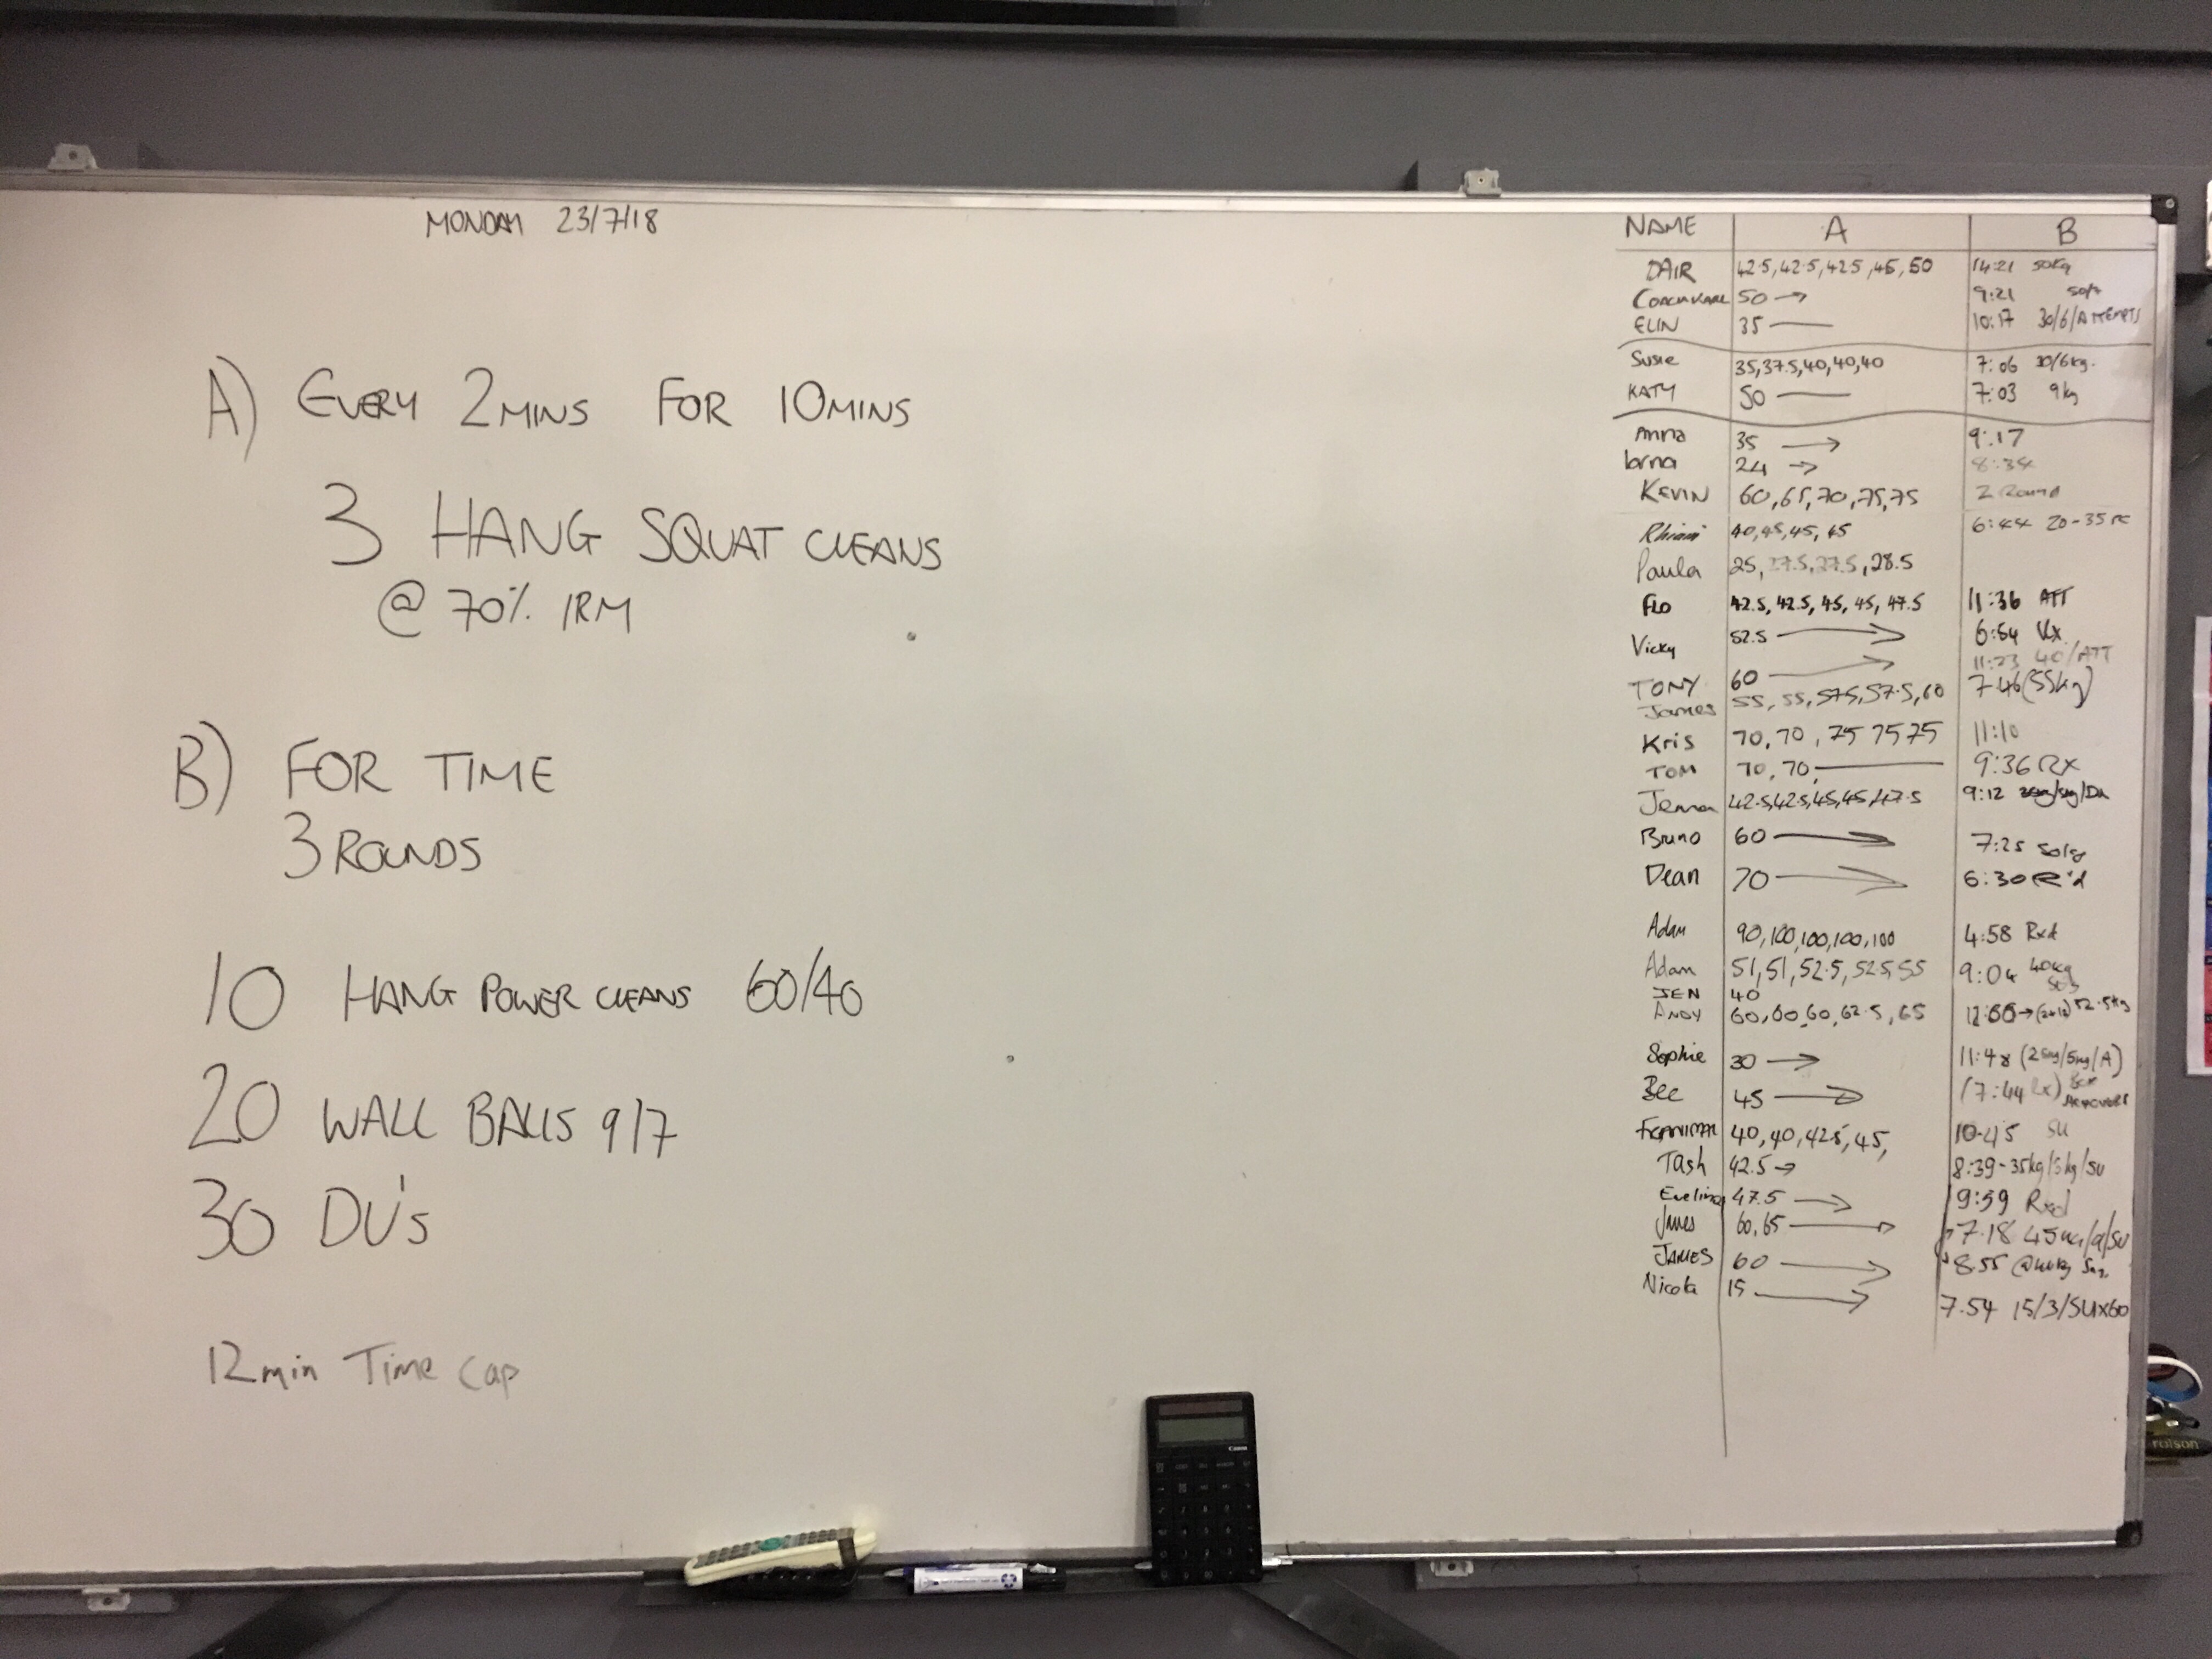 MONDAY 23/7/18
A) EVERY 2MINS FOR 10MINS
3 HANG SQUAT CLEANS
@ 70% 1RM
B) FOR TIME
3 ROUNDS
10 HANG POWER CLEANS 60/40
20 WALL BALLS 9/7
30 DU's
12min Time Cap
NAME A B
DAIR 42.5, 42.5, 42.5, 45, 50 14:21 50kg
50 → 9:21
ELIN 35 — 10:17 30/6/ATTEMPTS
Susie 35, 37.5, 40, 40, 40 7:06 30/6kg.
KATY 50 — 7:03 9kg
Anna 35 → 9:17
lorna 24 → 8:34
KEVIN 60, 65, 70, 75, 75 2 Round
40, 45, 45, 45 6:44 20-35
Paula 25, 27.5, 27.5, 28.5
FLO 42.5, 42.5, 45, 45, 47.5 11:36 ATT
Vicky 52.5 → 6:54 Rx
TONY 60 → 11:23 40/ATT
James 55, 55, 57.5, 57.5, 60 7.46 (55kg)
Kris 70, 70, 75 75 75 11:10
TOM 70, 70, — 9:36 RX
Jenna 42.5, 42.5, 45, 45, 47.5 9:12
Bruno 60 → 7:25 50kg
Dean 70 → 6:30 Rx'd
Adam 90, 100, 100, 100, 100 4:58 Rxd
Adam 51, 51, 52.5, 52.5 55 9:04 40kg
JEN 40
ANDY 60, 60, 60, 62.5, 65 52.5kg
Sophie 30 → 11:48 (25kg/5kg/A)
Bec 45 → (7:44 Rx)
40, 40, 42.5, 45, 10.45 SU
Tash 42.5 → 8:39-35kg/5kg/SU
Evelina 47.5 → 9:59 Rxd
James 60, 65 → 7.18 45kg/9/SU
JAMES 60 → 8.55
Nicola 15 → 7.54 15/3/SUx60
Canon
rolson